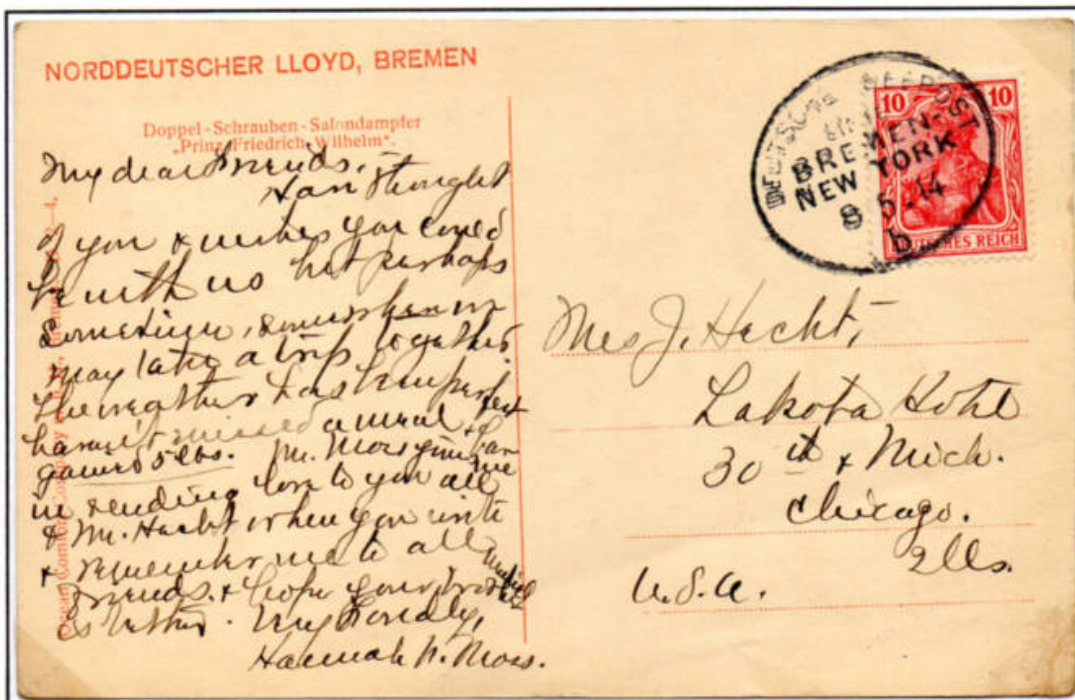 NORDDEUTSCHER LLOYD, BREMEN
Doppel-Schrauben-Salondampfer
„Prinz Friedrich Wilhelm".
My dear Friends,
Have thought
of you & wishes you could
be with us but perhaps
sometime, somewhere we
may take a trip together.
The weather has been perfect
haven't missed a meal & have
gained 5 lbs. Mr. Moss joins me
in sending love to you all
& Mr. Hecht when you write
& remember me to all
friends. & hope your
is better. Very Fondly,
Hannah N. Moss.
DEUTSCHE SEEPOST
BREMEN-
NEW YORK
8 5.14
b
10 10
DEUTSCHES REICH
Mrs J. Hecht,
Lakota Hotel
30th & Mich.
Chicago.
Ills.
U.S.A.